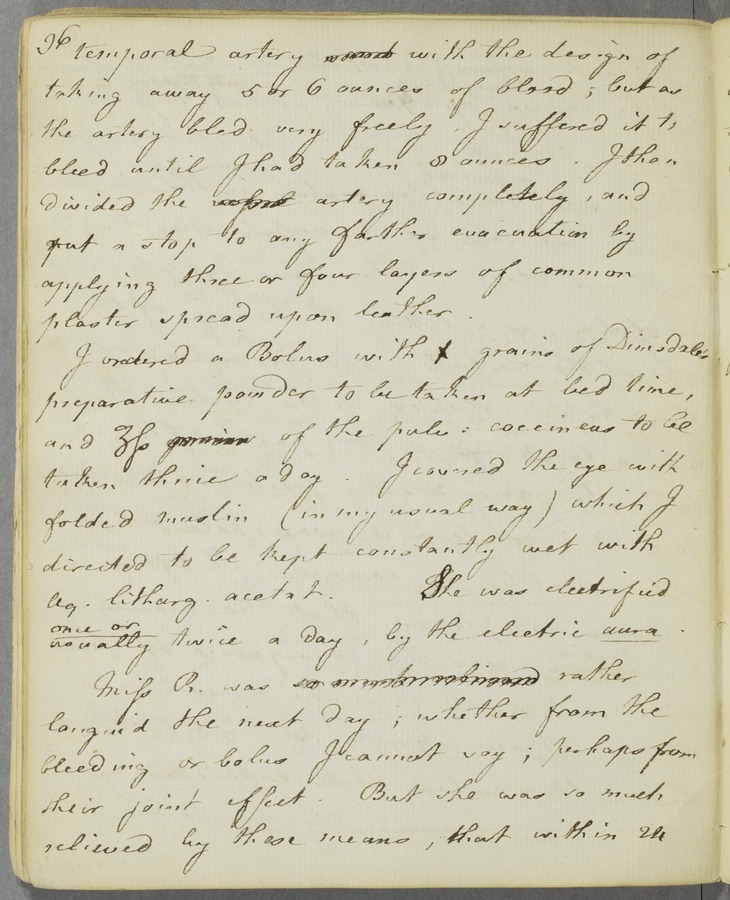 96
temporal artery with the design of
taking away 5 or 6 ounces of blood ; but as
the artery bled very freely , I suffered it to
bleed until I had taken 8 ounces . I then
divided the artery completely , and
put a stop to any farther evacuation by
applying three or four layers of common
plaster spread upon leather .
I ordered a Bolus with x grains of Dimsdale's
preparative powder to be taken at bed time ,
and ʒſs of the pulv : coccineus to be
taken thrice a day . I covered the eye with
folded muslin ( in my usual way ) which I
directed to be kept constantly wet with
aq . litharg . acetat . She was electrified
once or
usually twice a day , by the electric aura .
Miſs R. was rather
languid the next day ; whether from the
bleeding or bolus I cannot say ; perhaps from
their joint effect . But she was so much
relieved by these means , that within 24